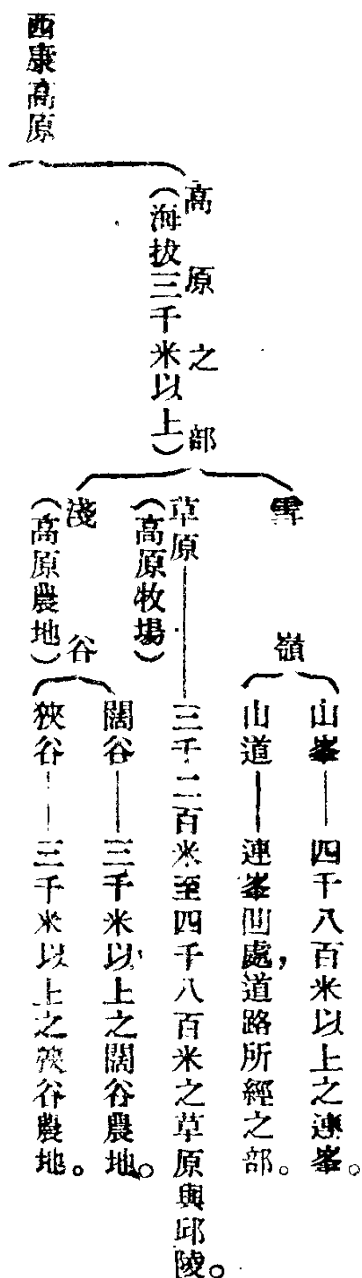 西康高原
高原之部
(海拔三千米以上)
雪嶺
山峯——四千八百米以上之連峯。
山道——連峯凹處,道路所經之部。
草原——三千二百米至四千八百米之草原與邱陵。
(高原牧場)
淺谷
(高原農地)
闊谷——三千米以上之闊谷農地。
狹谷——三千米以上之狹谷農地。